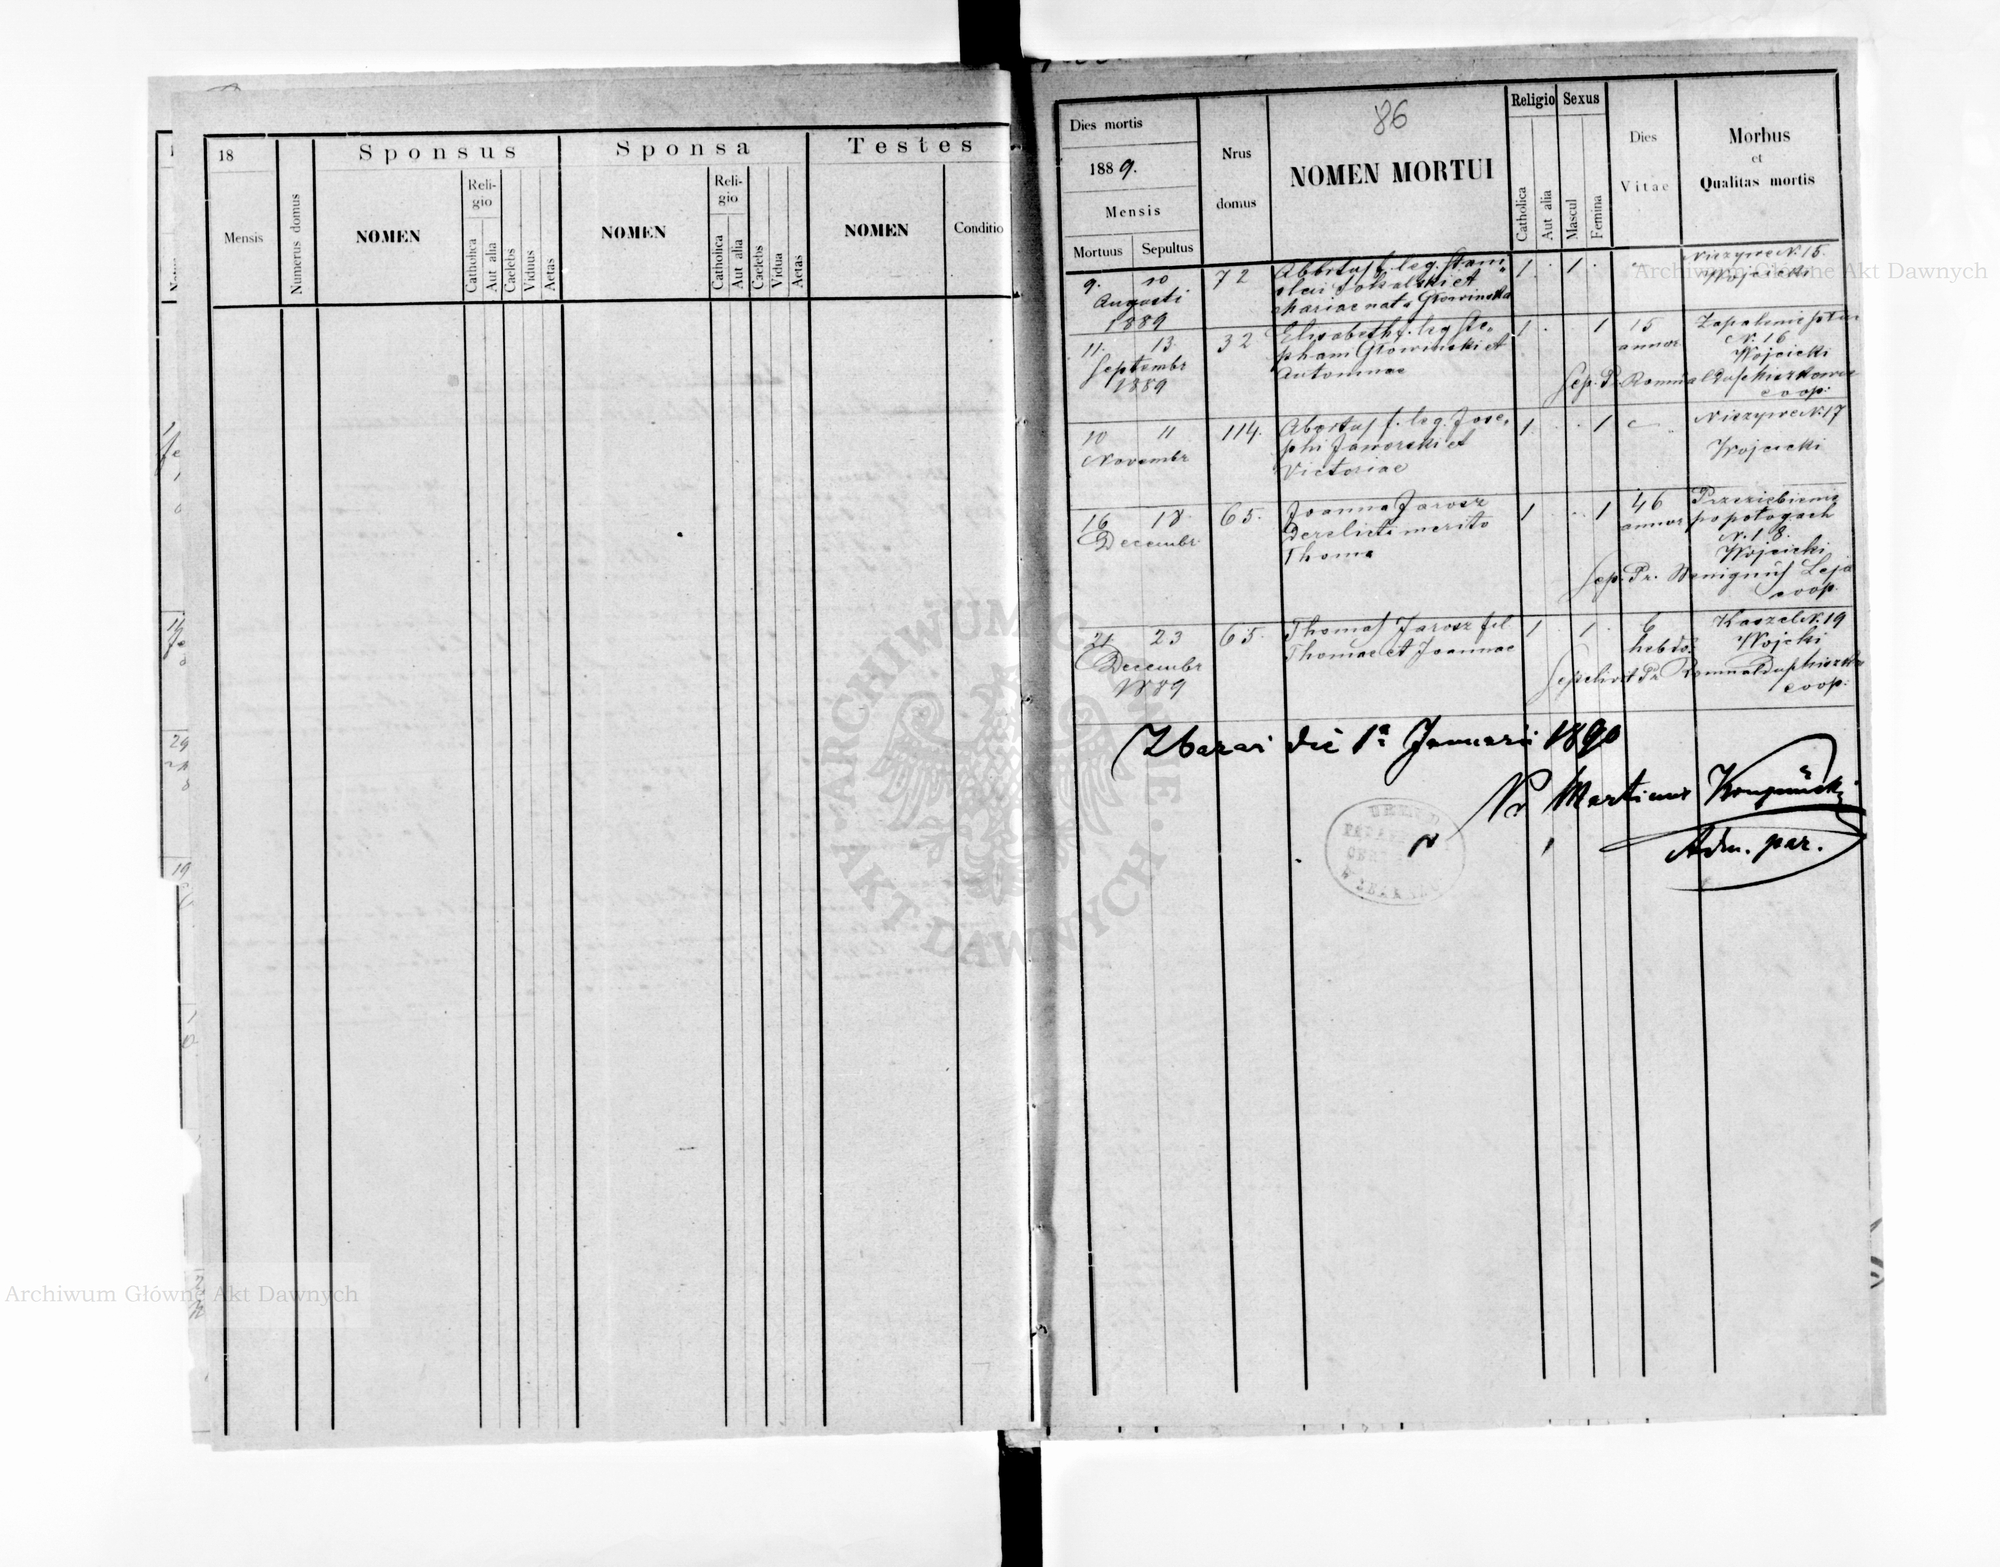 18
Mensis
Numerus domus
Sponsus
NOMEN
Reli-
gio
Catholica
Aut alia
Caelebs
Viduus
Aetas
Sponsa
NOMEN
Reli-
gio
Catholica
Aut alia
Caelebs
Vidua
Aetas
Testes
NOMEN
Conditio
86
Dies mortis
1889.
Mensis
Mortuus
Sepultus
Nrus
domus
NOMEN MORTUI
Religio
Catholica
Aut alia
Sexus
Mascul
Femina
Dies
Vitae
Morbus
et
Qualitas mortis
9. 10
Augusti
1889
72
Abortus f. leg. Stani„
slai Sokalski et
Mariae nata Głowinska
1 1
Nieżywe N. 15.
Wojcicki
11. 13
Septembr
1889
32
Elisabeth f. leg. Ste„
phani Głowinski et
Antoninae
1 1
15
annor
Zapalenie płuc
N. 16
Wojcicki
Sep. P. Romuald
coop.
10 11
Novembr
114.
Abortus f. leg. Jose„
phi Jaworski et
Victoriae
1 1
Nieżywe N. 17
Wojcicki
16 18
Decembr
65.
Joanna Jarosz
derelicta marito
Thoma
1 1
46
annor
Przeziębienie
po połogach
N. 18.
Wojcicki
Sep. Pr. Benignus Leja
coop.
21 23
Decembr
1889
65.
Thomas Jarosz fil
Thomae et Joannae
1 1
6
hebdo.
Kaszel N. 19
Wojcki
Sepelivit Pr. Romuald
coop.
Zbaraż die 1ª Januarii 1890
Martinus
Adm. par.
ARCHIWUM GŁÓWNE
AKT DAWNYCH
Archiwum Główne Akt Dawnych
Archiwum Główne Akt Dawnych